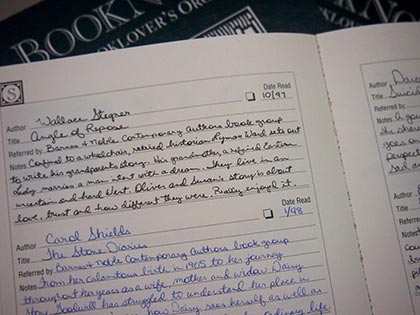 BOOKN
BOOKLOVER'S OR
S
Date Read
10/97
Author Wallace Stegner
Title Angle of Repose
Referred by Barnes & Noble Contemporary Authors book group
Notes Confined to a wheelchair, retired historian Lyman Ward sets out
to write his grandparents story. His grandmother, a refined Eastern
Lady marries a man, start with a dream. They live in an
uncertain and hard West. Oliver and Susan's story is about
love, trust and how different they were. Really enjoyed it.
Date Read
1/98
Author Carol Shields
Title The Stone Diaries
Referred by Barnes & Noble Contemporary Authors book group
Notes From her calamitous birth in 1905 to her journey
throughout her years as a wife, mother and widow Daisy
Stone Goodwill has struggled to understand her place in
how Daisy sees herself as well as
ordinary life
Author
Title
Referred
Notes